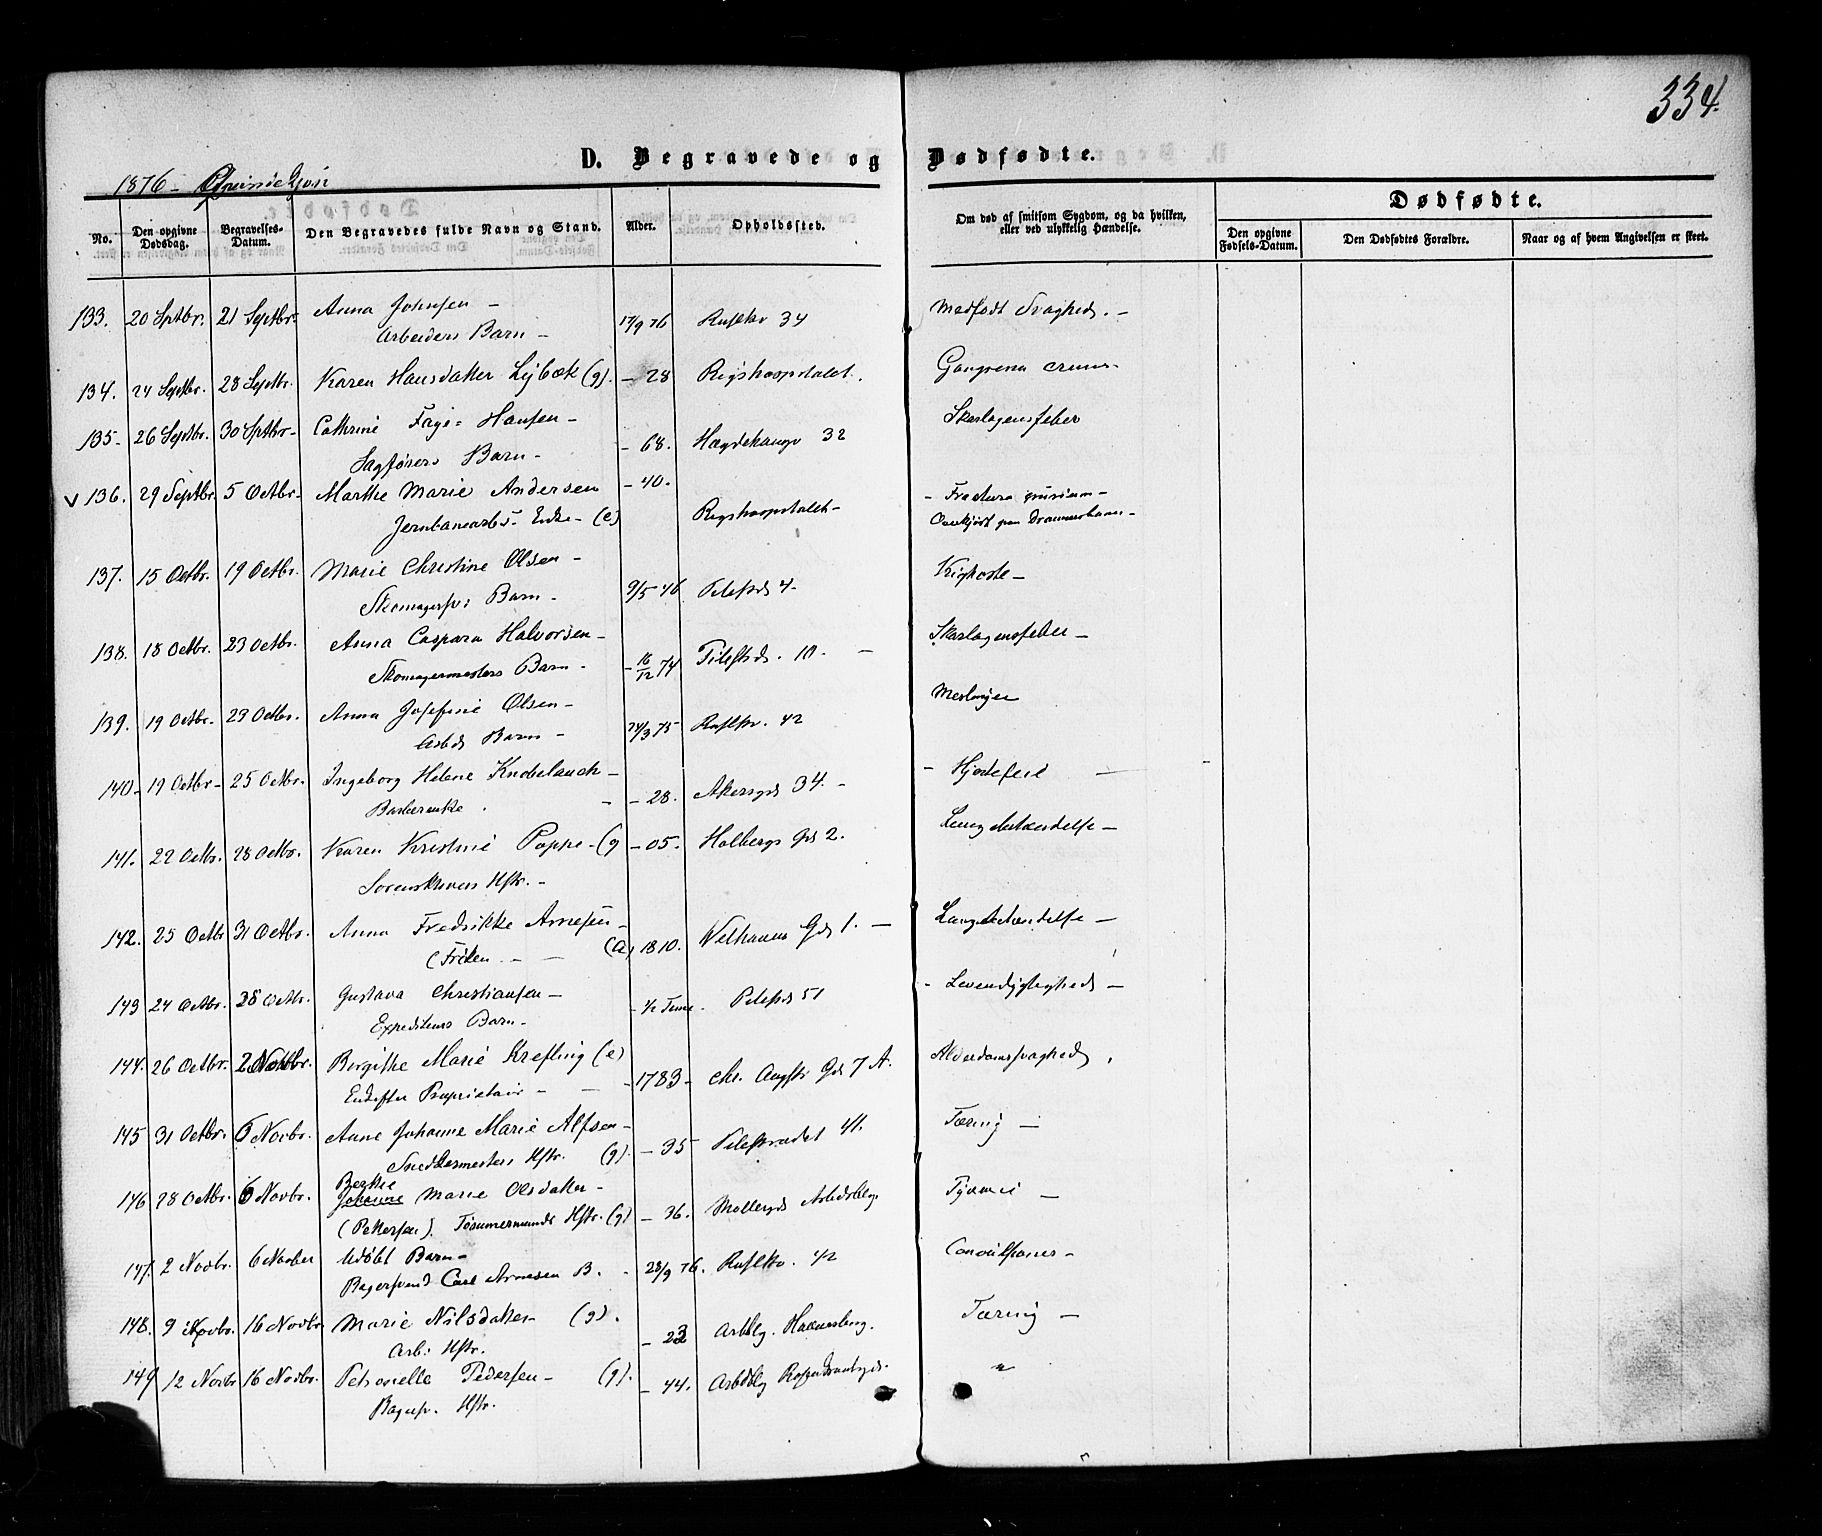 334.
D. Begravede og Dødfødte.
1876 -
No.
Den opgivne Dødsdag.
Begravelses-Datum.
Den Begravedes fulde Navn og Stand.
Alder.
Opholdssted.
Om død af smitsom Sygdom, og da hvilken, eller ved ulykkelig Hændelse.
Dødfødte.
Den opgivne Fødsels-Datum.
Den Dødfødtes Forældre.
Naar og af hvem Angivelsen er skeet.
133. 20 Septbr. 21 Septbr. Anna Johnsen - 17/9 76 34 Medfødt Svaghed. -
Arbeiders Barn -
134. 24 Septbr. 28 Septbr. Karen Hansdatter (g). - 28 Rigshospitalet. Gangrena
135- 26 Septbr. 30 Septbr- Cathrine Hansen - Skarlagensfeber
Sagførers Barn - - 68. 32
V 136. 29 Septbr. 5 Octbr- Marthe Marie Andersen - 40. - Fractura
Enke - (e) Rigshospitalet -
137. 15 Octbr. 19 Octbr. Marie Christine Olsen - Kighoste -
Barn - 9/5 76 4.
138. 18 Octbr. 23 Octbr. Anna Caspara Halvorsen - Skarlagensfeber -
Skomagermesters Barn - - 16/12 74 Pilestrds. 10. -
139. 19 Octbr. 23 Octbr. Anna Josefine Olsen - Meslinger
Arbds Barn - 24/3 75 42
140- 19 Octbr- 25 Octbr. Ingeborg Helene Knobelauch - - 28. Akersgd 34. - - Hjertefeil -
Barberenke
141. 22 Octbr. 28 Octbr. Karen Kristine Poppe - (g - 05. Holbergs Gd 2. Lungebetændelse -
Sorenskrivers Hstr. -
142. 25 Octbr 31 Octbr. Anna Fredrikke Arnesen - Lungebetændelse -
(Frøken - (a) 1810. Welhavens Gd 1. -
143 24 Octbr. 28 Octbr. Gustava Christiansen - - 1/2 Time. 51 - Levendygtighed -
Expediteurs Barn -
144. 26 Octbr. 2 Novbr. Birgithe Marie Krefting (e) Alderdomssvaghed.
Proprietair - - 1783 - Chr. Augsts Gd 7 A.
145 31 Octbr. 6 Novbr. Anne Johanne Marie Alfsen - Tæring -
Snedkermesters Hstr. (g). - 35 Pilestrædet 41.
Berthe
146 28 Octbr. 6 Novbr. Johanne Marie Olsdatter -
(Pettersen). Tømmermands Hstr. (g) - 36.
147. 2 Novbr. 6 Novber Udøbt Barn - Convulsioner -
Bagersvend Carl Arnesen B. 28/9 76. 42
148. 9 Novbr. 16 Novbr Marie Nilsdatter (g). Tæring -
Arb: Hstr. - 23
149 12 Novbr 16 Novbr. Petronelle Pedersen - (g). - 44. "
Hstr.